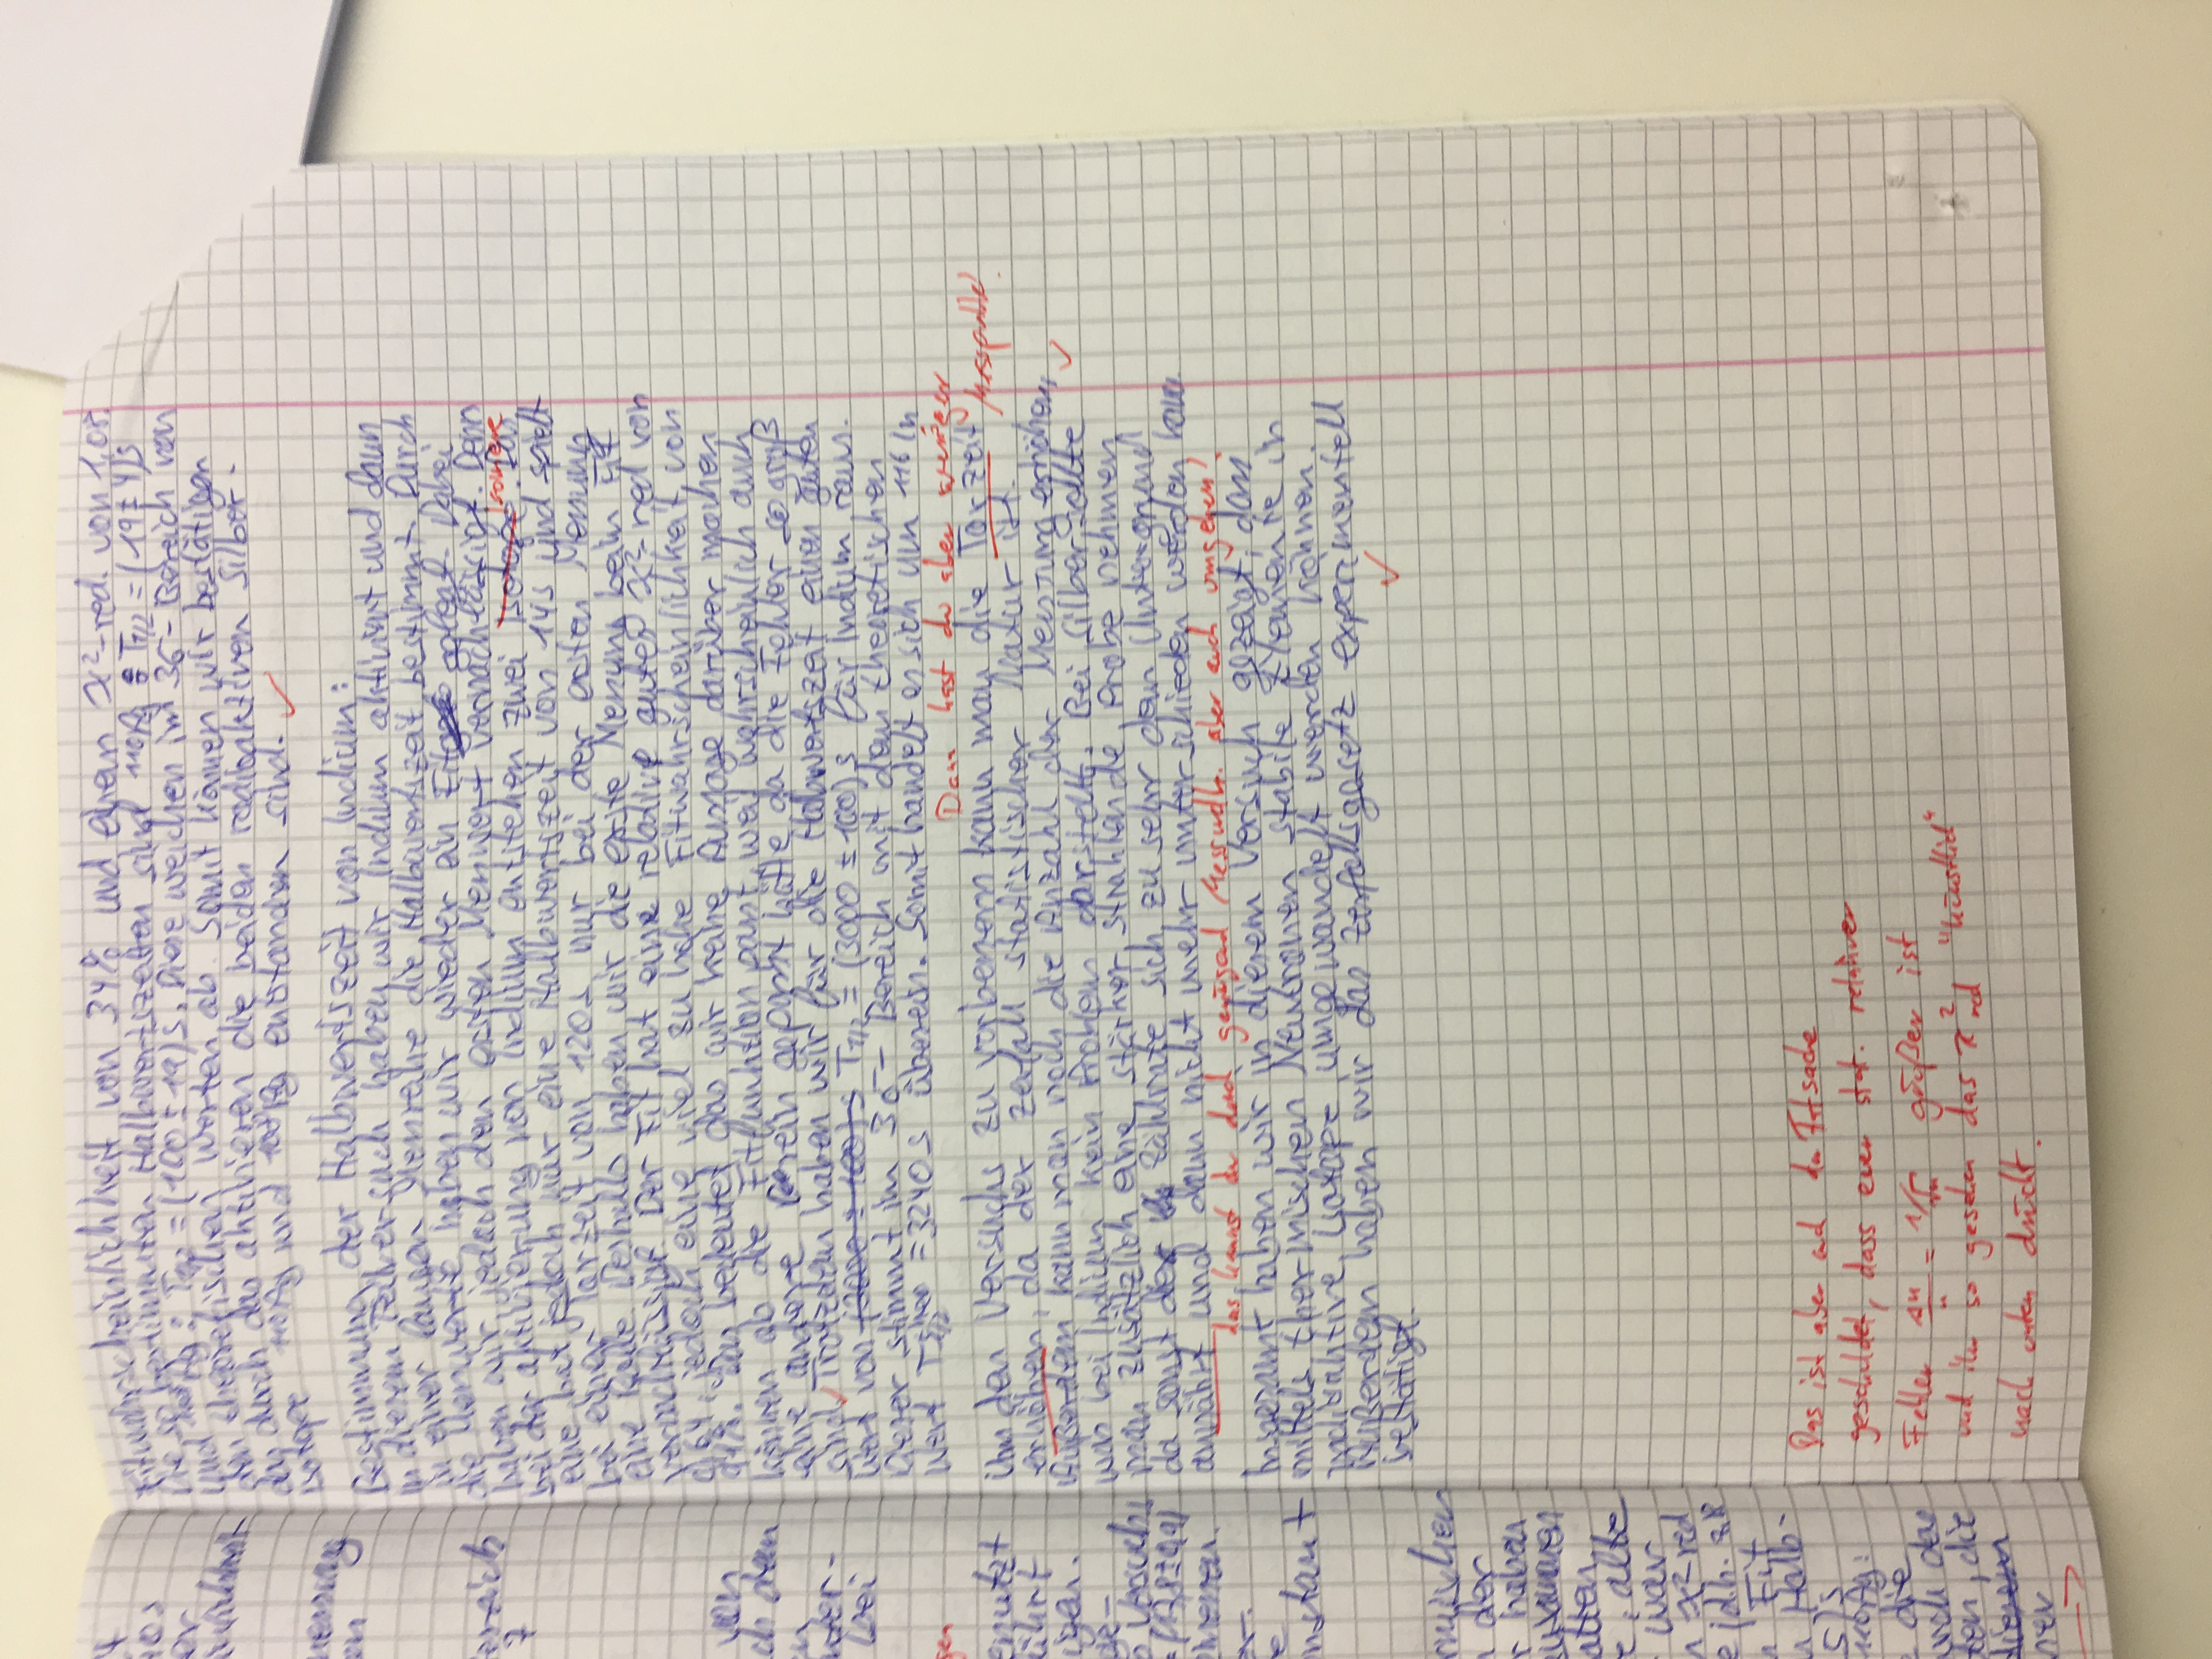 Fitwahrscheinlichkeit von 34% und einem χ²-red. von 1,05.
Die so bestimmten Halbwertszeiten sind ¹¹⁰Ag : T1/2 = (19 ± 4)s
und ¹⁰⁸Ag : T1/2 = (100 ± 19)s. Diese weichen im 3σ-Bereich von
den theoretischen Werten ab. Somit können wir bestätigen
das durch das aktivieren die beiden radioaktiven Silber-
isotope ¹¹⁰Ag und ¹⁰⁸Ag entstanden sind. ✓
Bestimmung der Halbwertszeit von Indium:
In diesem Teilversuch haben wir Indium aktiviert und dann
in einer langen Messreihe die Halbwertszeit bestimmt. Durch
die Messwerte haben wir wieder ein Fit gelegt. Dabei
haben wir jedoch den ersten Messwert vernachlässigt. Denn
bei der aktivierung von Indium entstehen zwei Isotope Isomere. Das
eine hat jedoch nur eine Halbwertszeit von 14s und spielt
bei einer Torzeit von 120s nur bei der ersten Messung
eine Rolle. Deshalb haben wir die erste Messung beim Fit
vernachlässigt. Der Fit hat ein relativ gutes χ²-red von
0,64, jedoch eine viel zu hohe Fitwahrscheinlichkeit von
91%. Das bedeutet das wir keine Aussage darüber machen
können ob die Fitfunktion passt, weil wahrscheinlich auch
eine andere rein gepasst hätte da die Fehler so groß
sind. ✓ Trotzdem haben wir für die Halbwertszeit einen guten
Wert von (3000 ± 100)s T1/2 = (3000 ± 100)s für Indium raus.
Dieser stimmt im 3σ-Bereich mit dem theoretischen
Wert T1/2 = 3240s überein. Somit handelt es sich um ¹¹⁶In
Dann hast du aber weniger
Messpunkte!
Um den Versuchs zu verbessern kann man die Torzeit
erhöhen, da der Zerfall statistischer Natur ist.
Außerdem kann man noch die Anzahl der Messung erhöhen, ✓
was bei Indium kein Problem darstellt. Bei Silber sollte
man zusätzlich eine stärker strahlende Probe nehmen
da sonst die Zählrate sich zu sehr dem Untergrund
annährt und dann nicht mehr unterschieden werden kann.
das kannst du durch genügend Messwdh. aber auch umgehen!
Insgesamt haben wir in diesem Versuch gezeigt, dass
mittels thermischen Neutronen stabile Elemente in
radioaktive Isotope umgewandelt werden können.
Außerdem haben wir das Zerfallsgesetz experimentell
bestätigt. ✓
Das ist aber auch der Tatsache
geschuldet, dass euer stat. relativer
Fehler Δn/n = 1/√n größer ist
und ihr so gesehen das χ²red "künstlich"
nach unten drückt.